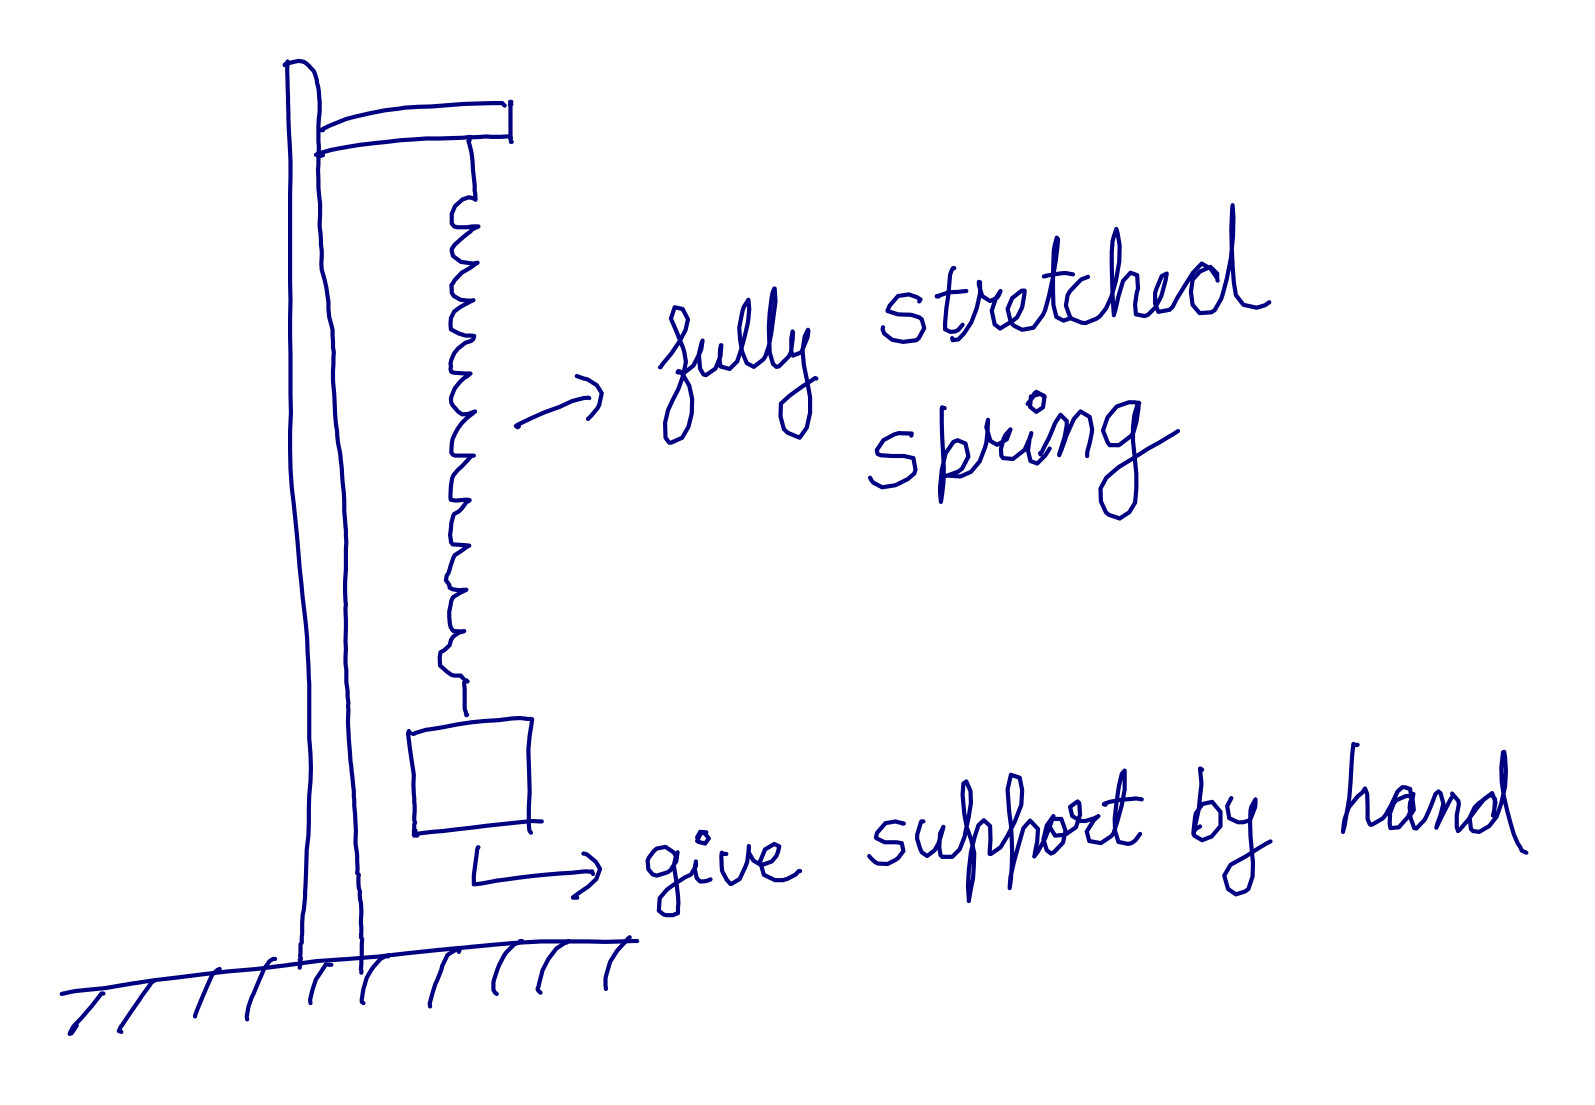 fully stretched
spring
give support by hand